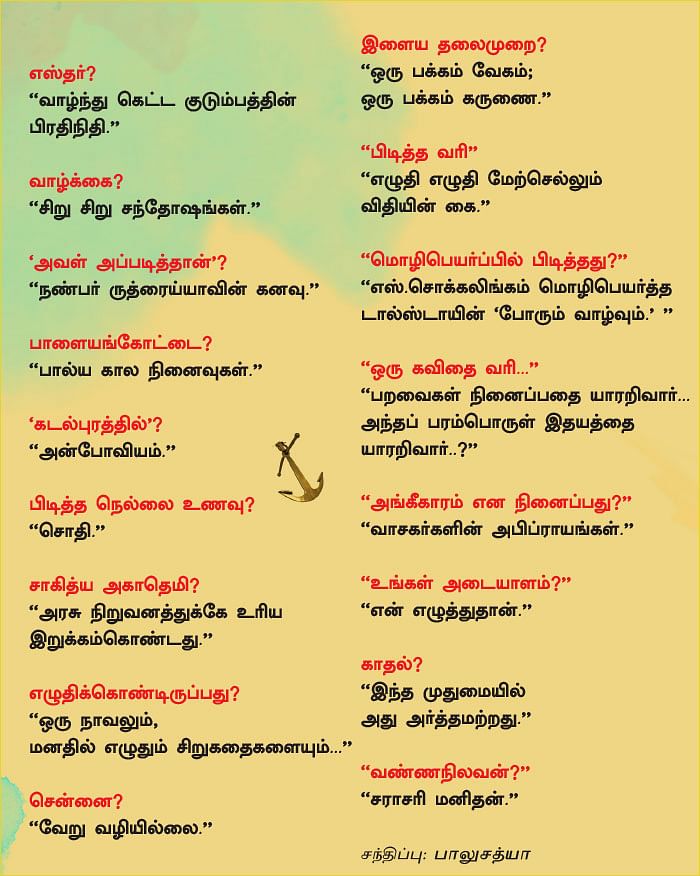 எஸ்தர்?
“வாழ்ந்து கெட்ட குடும்பத்தின்
பிரதிநிதி.”
வாழ்க்கை?
“சிறு சிறு சந்தோஷங்கள்.”
‘அவள் அப்படித்தான்’?
“நண்பர் ருத்ரைய்யாவின் கனவு.”
பாளையங்கோட்டை?
“பால்ய கால நினைவுகள்.”
‘கடல்புரத்தில்’?
“அன்போவியம்.”
பிடித்த நெல்லை உணவு?
“சொதி.”
சாகித்ய அகாதெமி?
“அரசு நிறுவனத்துக்கே உரிய
இறுக்கம்கொண்டது.”
எழுதிக்கொண்டிருப்பது?
“ஒரு நாவலும்,
மனதில் எழுதும் சிறுகதைகளையும்...”
சென்னை?
“வேறு வழியில்லை.”
இளைய தலைமுறை?
“ஒரு பக்கம் வேகம்;
ஒரு பக்கம் கருணை.”
“பிடித்த வரி”
“எழுதி எழுதி மேற்செல்லும்
விதியின் கை.”
“மொழிபெயர்ப்பில் பிடித்தது?”
“எஸ்.சொக்கலிங்கம் மொழிபெயர்த்த
டால்ஸ்டாயின் ‘போரும் வாழ்வும்.’ ”
“ஒரு கவிதை வரி...”
“பறவைகள் நினைப்பதை யாரறிவார்...
அந்தப் பரம்பொருள் இதயத்தை
யாரறிவார்..?”
“அங்கீகாரம் என நினைப்பது?”
“வாசகர்களின் அபிப்ராயங்கள்.”
“உங்கள் அடையாளம்?”
“என் எழுத்துதான்.”
காதல்?
“இந்த முதுமையில்
அது அர்த்தமற்றது.”
“வண்ணநிலவன்?”
“சராசரி மனிதன்.”
சந்திப்பு: பாலுசத்யா